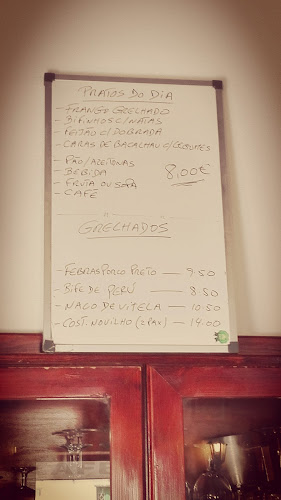 PRATOS DO DIA
- FRANGO GRELHADO
- BIFINHOS C/NATAS
- FEIJÃO C/DOBRADA
- CARAS DE BACALHAU C/LEGUMES
- PÃO/AZEITONAS
- BEBIDA 8,00€
- FRUTA OU SOPA
- CAFÉ
GRELHADOS
- FEBRAS PORCO PRETO — 9.50
- BIFE DE PERÚ — 8.50
- NACO DE VITELA — 10.50
- COST. NOVILHO (2 PAX) — 14.00